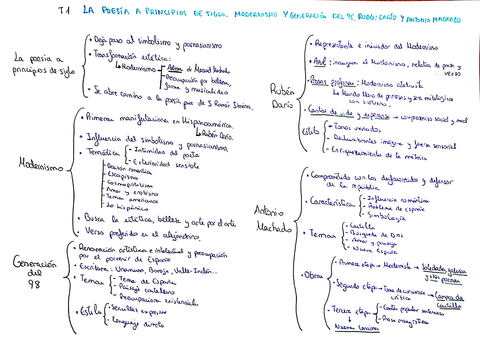 T.1 LA POESÍA A PRINCIPIOS DE SIGLO. MODERNISMO Y GENERACIÓN DEL 98, RUBÉN DARÍO Y ANTONIO MACHADO
La poesía a
principios de siglo
• Deja paso al simbolismo y parnasianismo
• Transformación estética:
↳ Modernismo
de Manuel Machado
- Preocupación por belleza,
forma y musicalidad
• Se abre camino a la poesía pura de J. Ramón Jiménez.
Modernismo
• Primeras manifestaciones en Hispanoamérica.
↳ Rubén Darío.
• Influencia del simbolismo y parnasianismo.
• Temática
- Intimidad del poeta
- Exterioridad sensible
Desazón romántica
Escapismo
Cosmopolitismo
Amor y erotismo
Temas americanos
Lo hispánico
• Busca la estética, belleza y arte por el arte
• Verso preferido es el alejandrino.
Generación
del
98
• Renovación artística e intelectual y preocupación
por el porvenir de España
• Escritores: Unamuno, Baroja, Valle-Inclán...
• Temas
- Tema de España
- Paisaje castellano
- Preocupaciones existenciales
• Estilo
- Sencillez expresiva
- Lenguaje directo
Rubén
Darío
• Representante e iniciador del Modernismo
• Azul: inaugura el Modernismo, relatos de prosa y
verso
• Prosas profanas: Modernismo
con
• Cantos de vida y esperanza → compromiso social y moral
Estilo
• Tonos variados
• Deslumbrantes imágenes y fuerza sensorial
• Enriquecimiento de la métrica
Antonio
Machado
• Comprometido con los desfavorecidos y defensor
de la república
• Características
- Influencia romántica
- Problema de España
- Simbología
• Temas
- Castilla
- Búsqueda de Dios
- Amor y paisaje
- Nueva España
• Obras
- Primera etapa → Modernista → Soledades, galerías
y otros poemas
- Segunda etapa → Toma de conciencia
crítica
→ Campos de
Castilla
- Tercera etapa
- Cantar popular sentencioso
- Prosa
Nuevas canciones